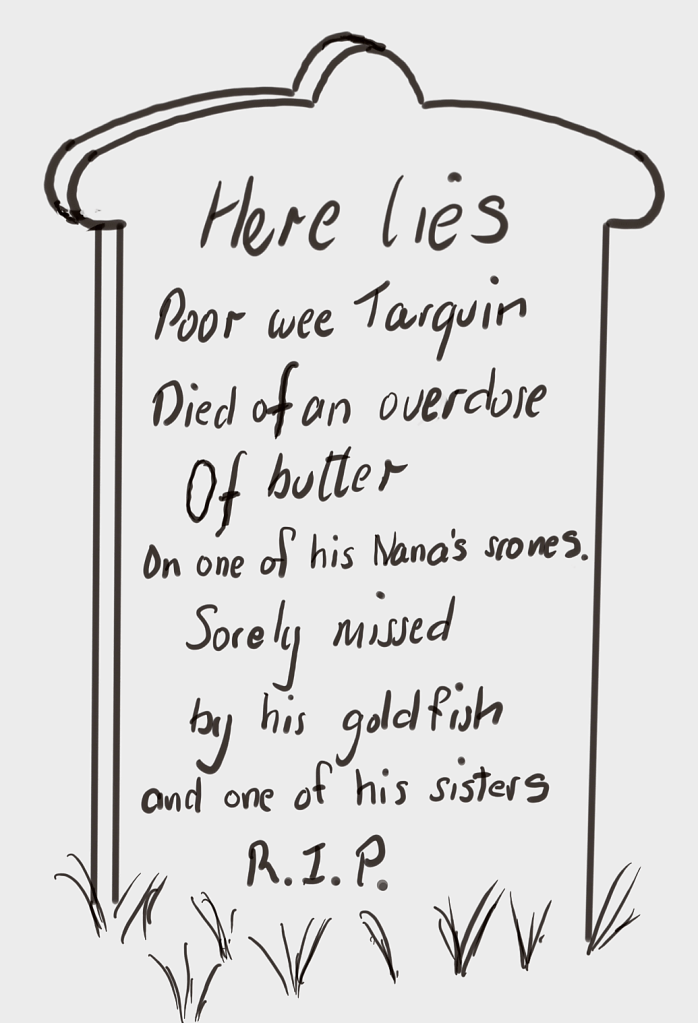 Here lies
Poor wee Tarquin
Died of an overdose
Of butter
On one of his Nana's scones.
Sorely missed
by his goldfish
and one of his sisters
R.I.P.